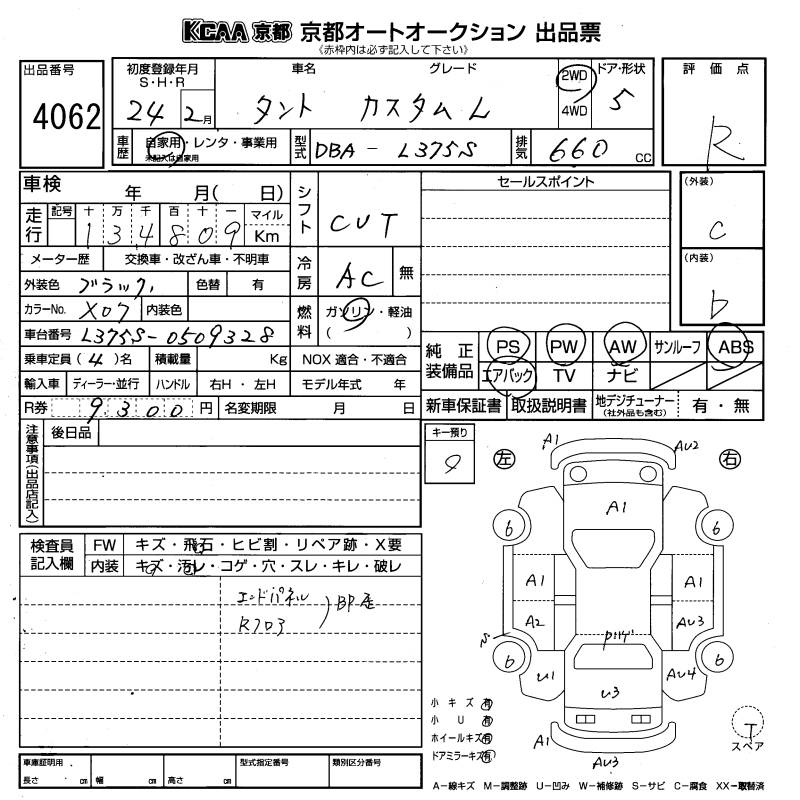 KCAA 京都 京都オートオークション 出品票
《赤枠内は必ず記入して下さい》
出品番号
4062
初度登録年月
S・H・R
24 2月
車名
グレード
タント カスタム L
2WD
4WD
ドア・形状
5
評価点
R
車歴
自家用・レンタ・事業用
未記入は自家用
型式
DBA-L375S
排気
660 CC
車検 年 月( 日)
走行
記号 十 万 千 百 十 一 マイル
134809 Km
メーター歴 交換車・改ざん車・不明車
外装色 ブラック 色替 有
カラーNo. X07 内装色
車台番号 L375S-0509328
乗車定員 (4)名 積載量 Kg
輸入車 ディーラー・並行 ハンドル 右H・左H
R券 9300 円 名変期限 月 日
シフト
CVT
冷房
AC 無
燃料
ガソリン・軽油
( )
NOX 適合・不適合
モデル年式 年
セールスポイント
(外装)
C
(内装)
b
純正装備品
PS PW AW サンルーフ ABS
エアバック TV ナビ
新車保証書 取扱説明書 地デジチューナー
(社外品も含む)
有・無
注意事項(出品店記入)
後日品
キー預り
左
右
A1
AU2
A1
6
6
A1
A1
A2
AU3
S
6
6
U1
AU4
U3
A1
AU3
検査員記入欄
FW キズ・飛石・ヒビ割・リペア跡・X要
内装 キズ・汚レ・コゲ・穴・スレ・キレ・破レ
エンドパネル
Rフロア
小キズ 有
小U 有
ホイールキズ 有
ドアミラーキズ 有
T
スペア
車庫証明用
長さ cm 幅 cm 高さ cm
型式指定番号
類別区分番号
A-線キズ M-調整跡 U-凹み W-補修跡 S-サビ C-腐食 XX-取替済